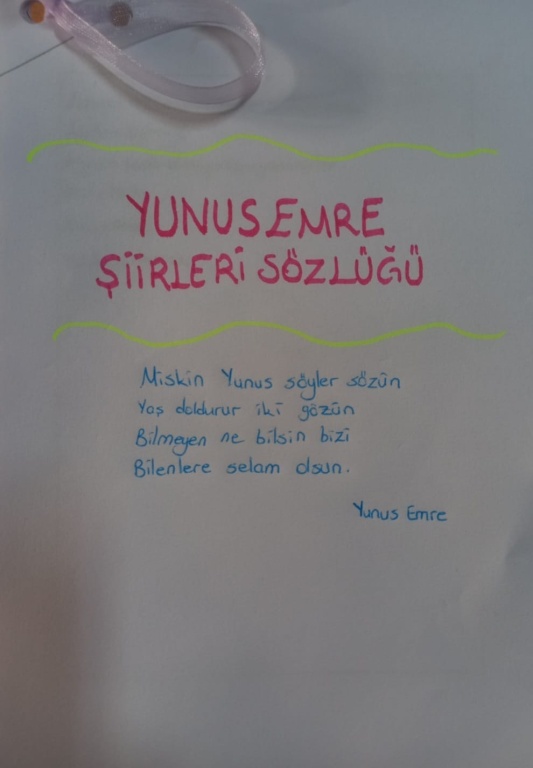 YUNUS EMRE
ŞİİRLERİ SÖZLÜĞÜ
Miskin Yunus söyler sözün
Yaş doldurur iki gözün
Bilmeyen ne bilsin bizi
Bilenlere selam olsun.
Yunus Emre